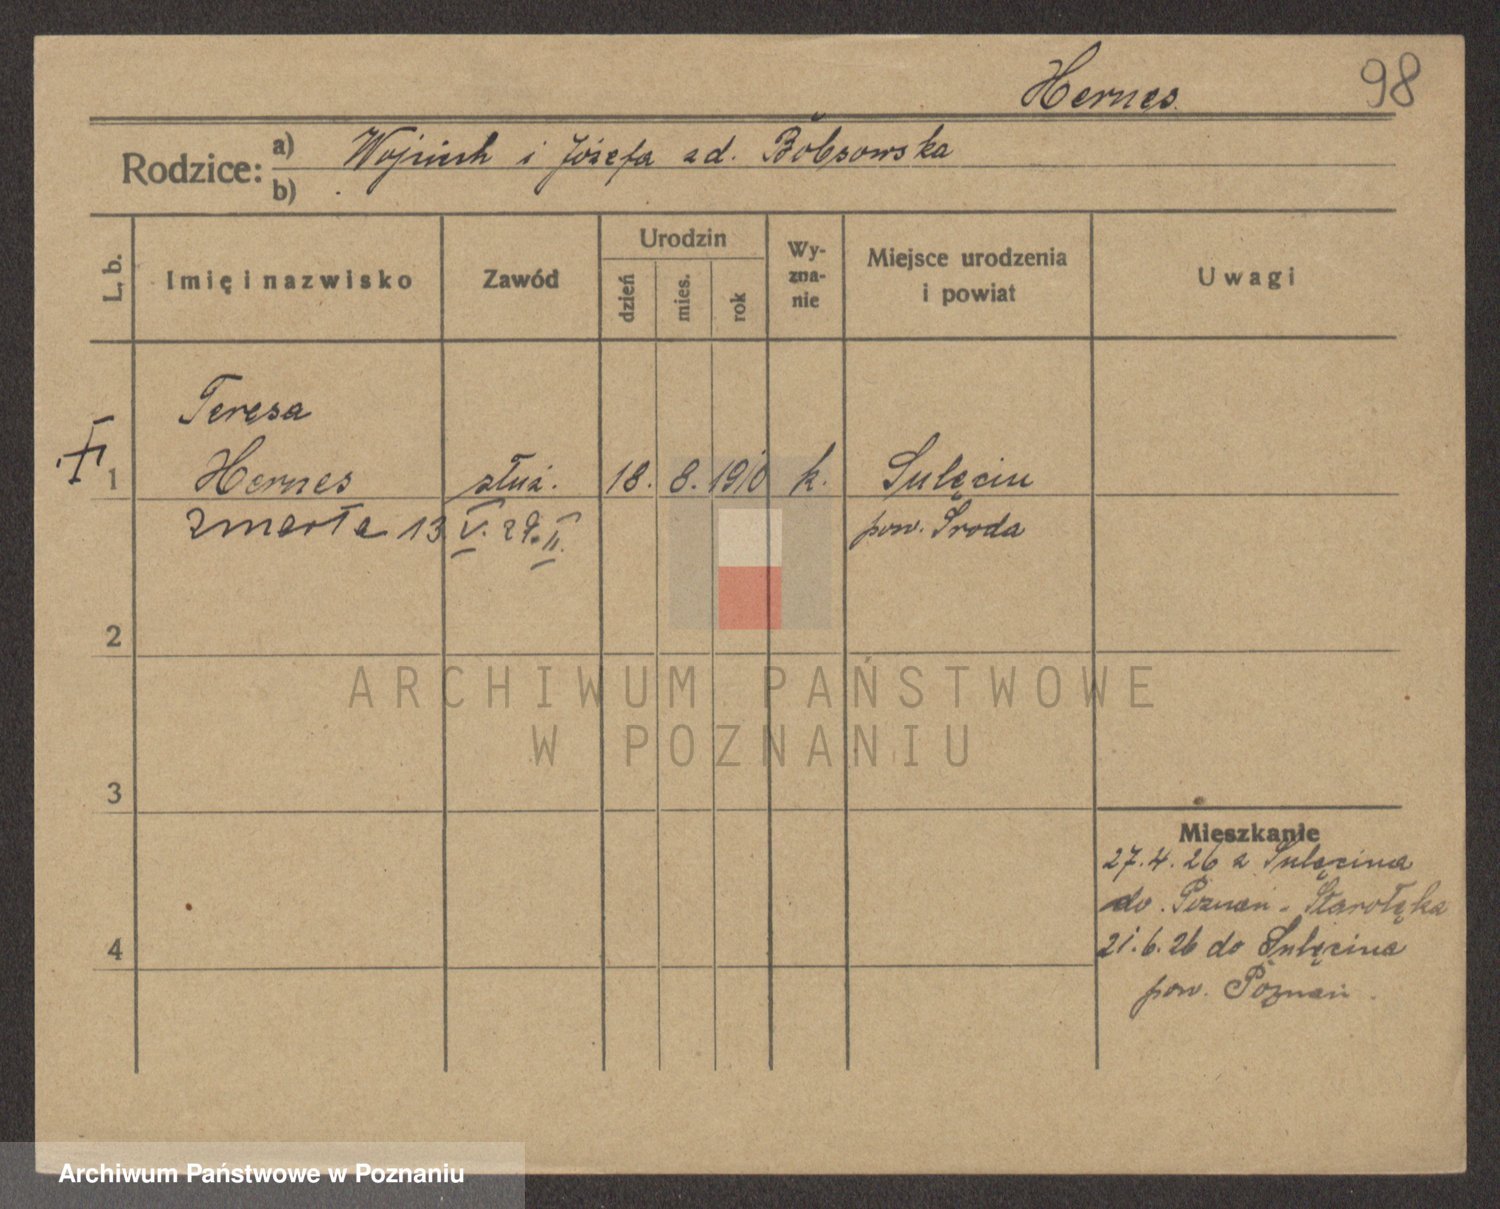 Hernes
98
Rodzice:
a) Wojciech i Józefa zd.
b)
L. b.
Imię i nazwisko
Zawód
Urodzin
dzień
mies.
rok
Wy-
zna-
nie
Miejsce urodzenia
i powiat
Uwagi
Teresa
1 Hernes służ. 18. 8. 1910 k. Sulęcin
zmarła 13 V. 29. II. pow. Środa
2
ARCHIWUM PAŃSTWOWE
W POZNANIU
3
Mieszkanie
27.4.26 z Sulęcina
do Poznań - Starołęka
4
21.6.26 do Sulęcina
pow. Poznań
Archiwum Państwowe w Poznaniu